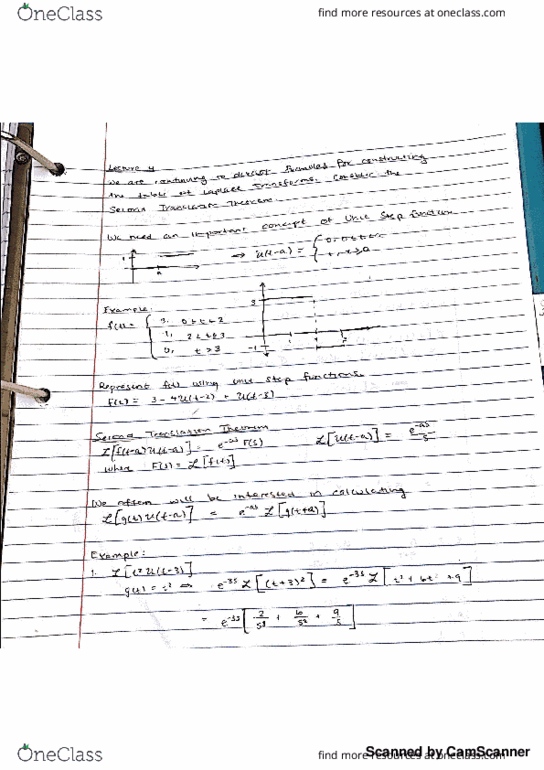 OneClass
find more resources at oneclass.com
Lecture 4
We are continuing to develop formulas for constructing
the table of Laplace Transforms. Consider the
Second Translation Theorem.
We need an important concept of Unit Step function
1
a
⇒ U(t-a) = { 0, 0≤t<a
1, t≥a
Example:
f(t) = { 3, 0≤t<2
1, 2≤t<3
0, t>3
3
-1
1
Represent f(t) using unit step functions
f(t) = 3 - 4U(t-2) + U(t-3)
Second Translation Theorem
L[f(t-a)U(t-a)] = e^-as F(s) L[U(t-a)] = e^-as/s
where F(s) = L[f(t)]
We often will be interested in calculating
L[g(t)U(t-a)] = e^-as L[g(t+a)]
Example:
1. L[t²U(t-3)]
g(t) = t² ⇒ e^-3s L[(t+3)²] = e^-3s L[t² + 6t + 9]
= e^-3s [2/s³ + 6/s² + 9/s]
OneClass
find more resources at oneclass.com
Scanned by CamScanner